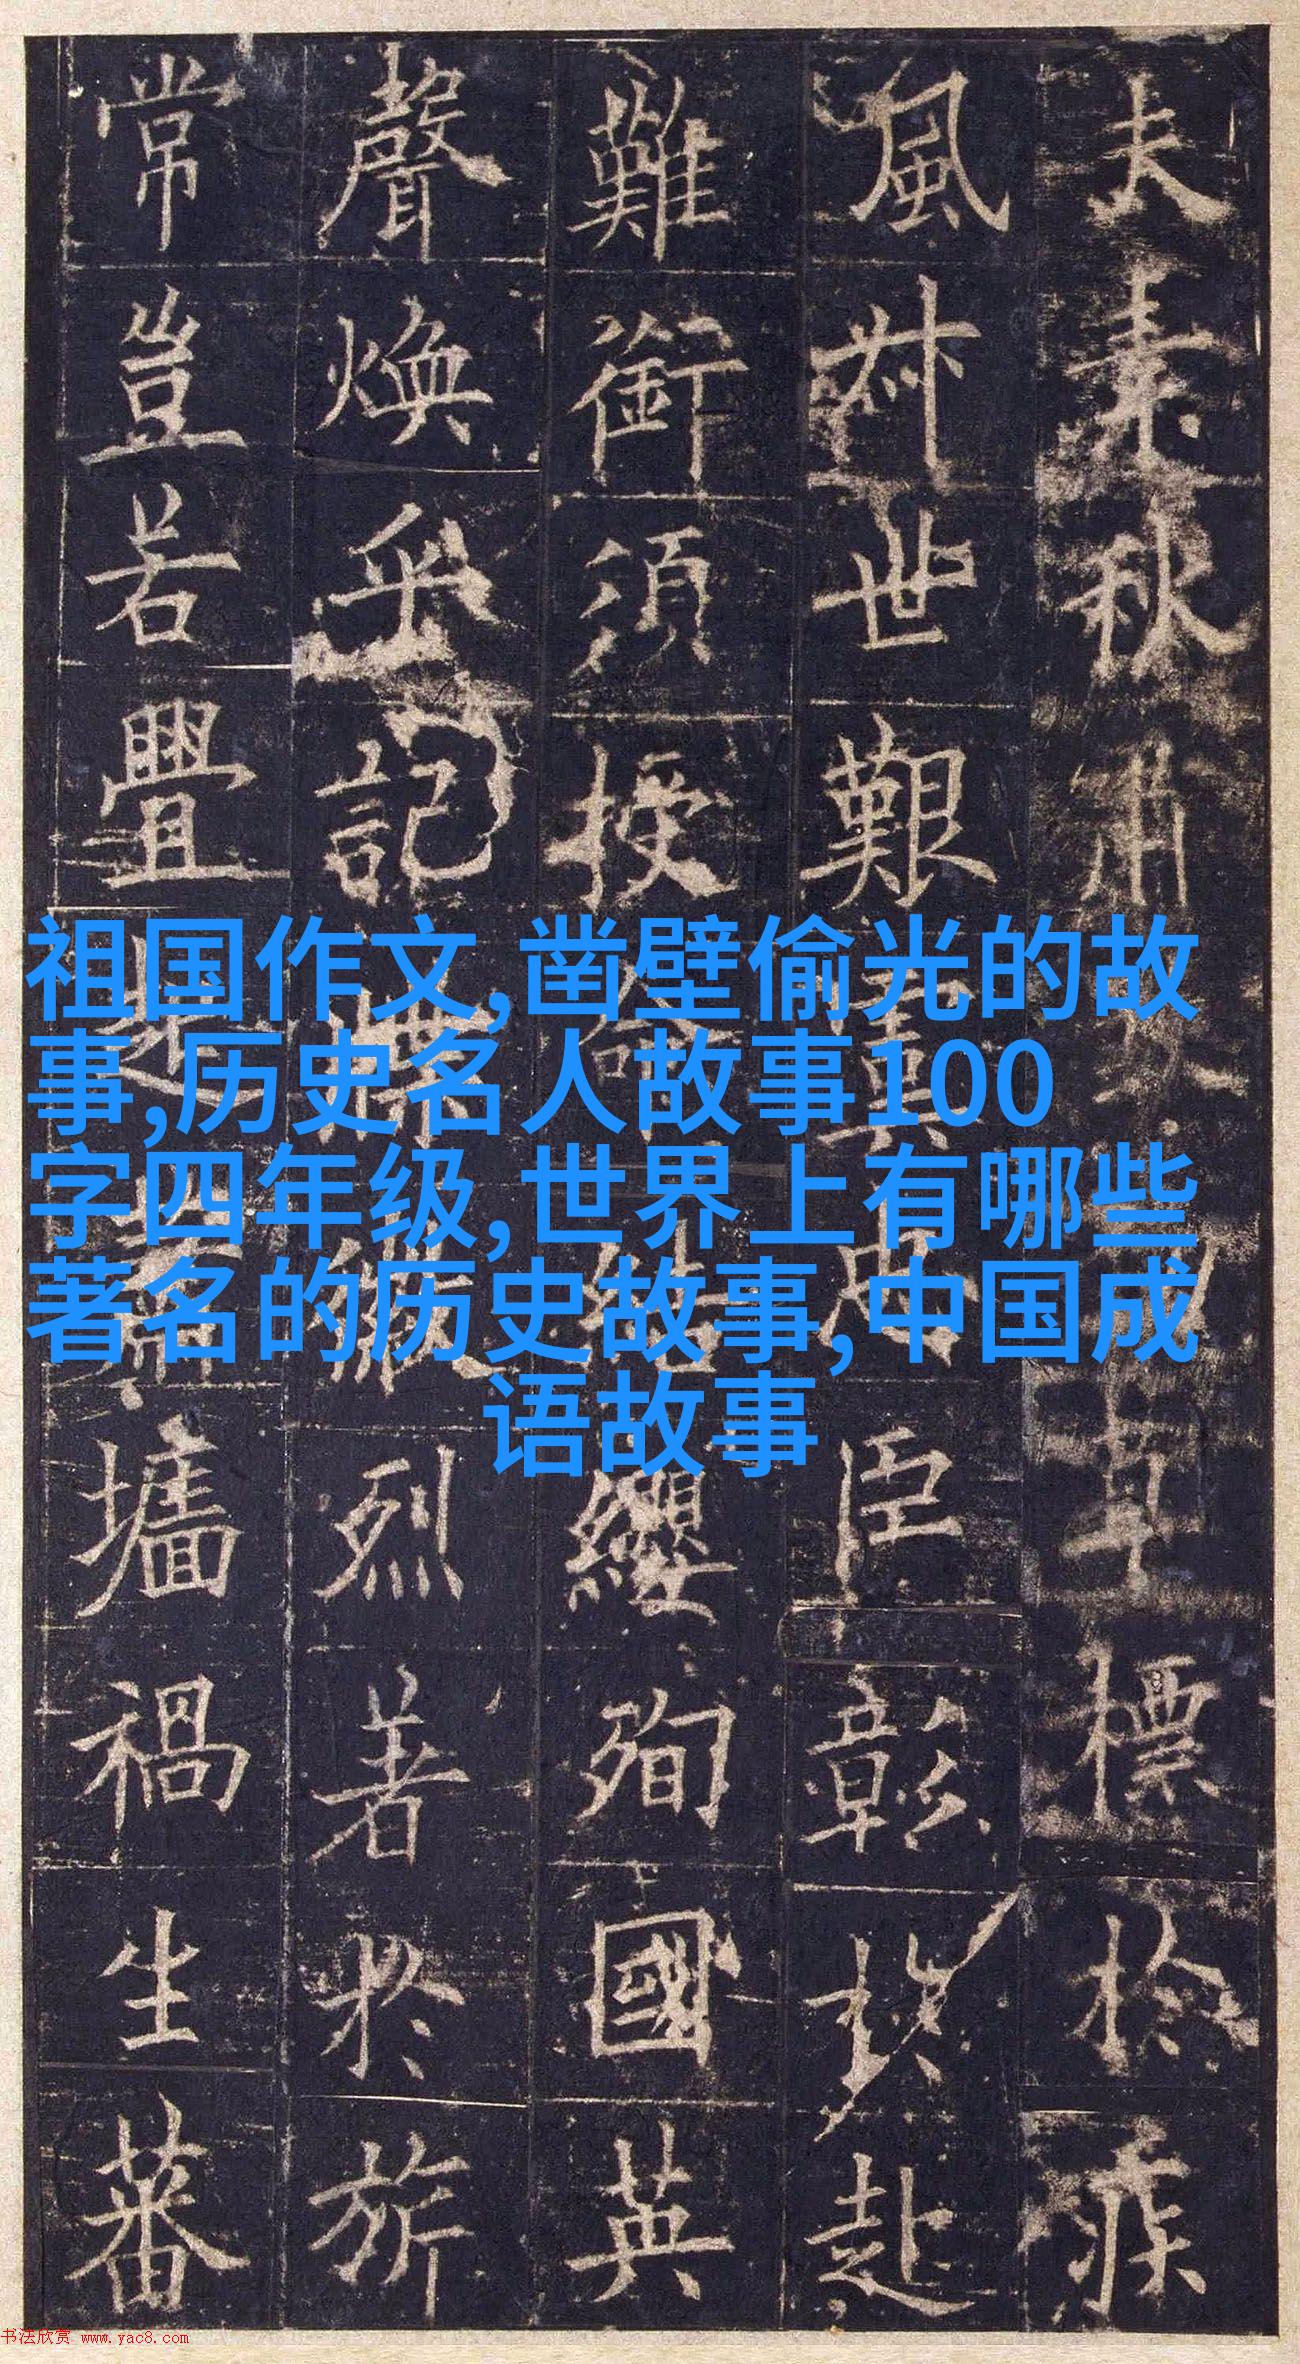 夫素秋肅煞勁草標於疾
風叔世艱虞忠臣彰於赴
難銜須授命結纓殉國英
聲煥乎記牒徽烈著於旂
常豈若釁起蕭墻禍生蕃
祖国作文,凿壁偷光的故
事,历史名人故事100
字四年级,世界上有哪些
著名的历史故事,中国成
语故事
书法欣赏 www.yac8.com